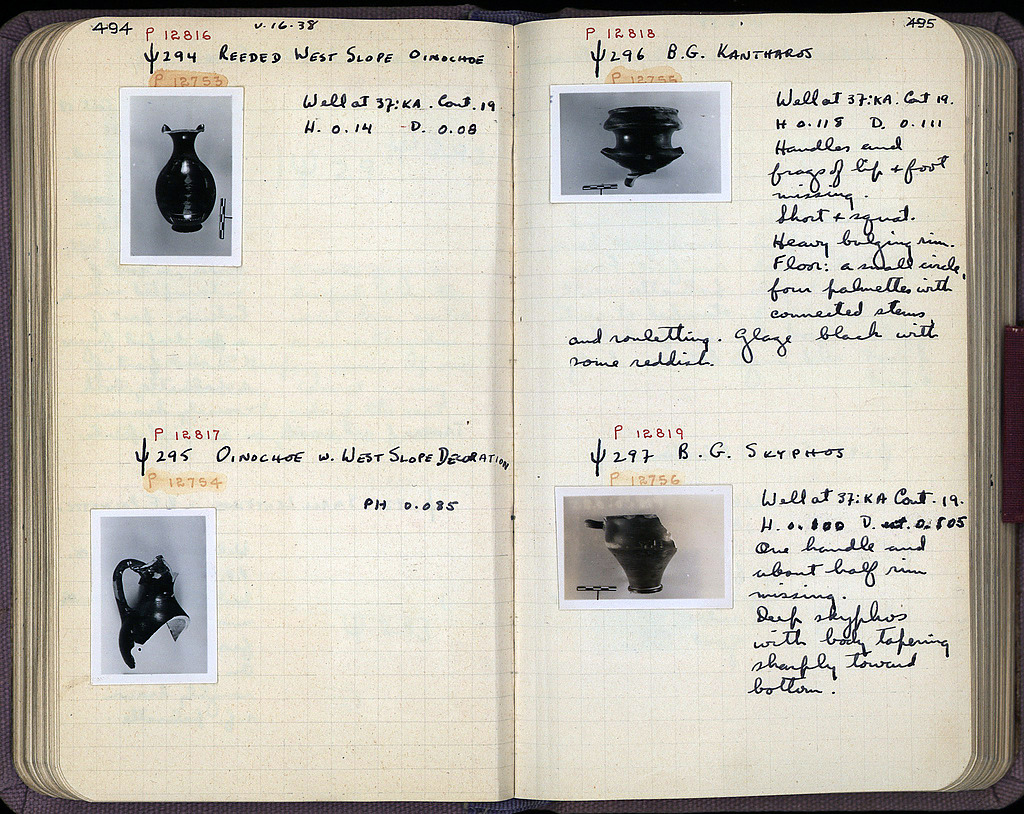 494
v.16.38
P 12816
ψ294 REEDED WEST SLOPE OINOCHOE
P 12753
Well at 37:KA. Cont. 19.
H. 0.14 D. 0.08
P 12817
ψ295 OINOCHOE W. WEST SLOPE DECORATION
P 12754
PH 0.085
495
P 12818
ψ296 B.G. KANTHAROS
P 12755
Well at 37:KA. Cont 19.
H 0.118 D. 0.111
Handles and
frags of lip + foot
missing.
Short + squat.
Heavy bulging rim.
Floor: a small circle,
four palmettes with
connected stems,
and rouletting. Glaze black with
some reddish.
P 12819
ψ297 B.G. SKYPHOS
P 12756
Well at 37:KA Cont. 19.
H. 0.100 D. est. 0.105
One handle and
about half rim
missing.
Deep skyphos
with body tapering
sharply toward
bottom.